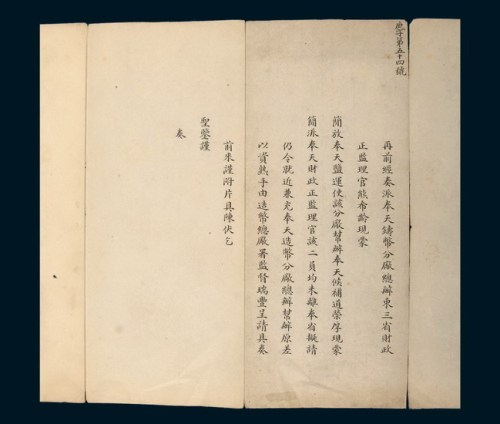 庶字第五十四號
再前經奏派奉天鑄幣分廠總辦東三省財政
正監理官熊希齡現蒙
簡放奉天鹽運使該分廠幫辦奉天候補道榮厚現蒙
簡派奉天財政正監理官該二員均未離奉省擬請
仍令就近兼充奉天造幣分廠總辦幫辦原差
以資熟手由造幣總廠署監督瑞豐呈請具奏
前來謹附片具陳伏乞
聖鑒謹
奏